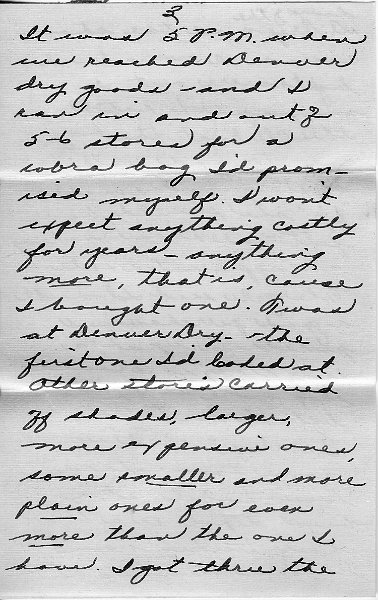 3
It was 5 P.M. when
we reached Denver
dry goods - and I
ran in and out of
5-6 stores for a
cobra bag I'd prom-
ised myself. I won't
expect anything costly
for years - anything
more, that is, cause
I bought one. Twas
at Denver Dry - the
first one I'd looked at.
Other stores carried
off shades, larger,
more expensive ones,
some smaller and more
plain ones for even
more than the one I
have. I got thru the